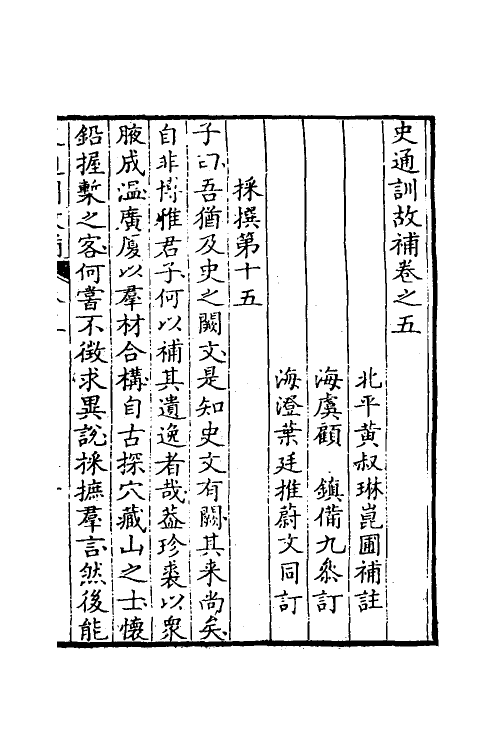 史通訓故補卷之五
北平黃叔琳崑圃補註
海虞顧　鎮備九叅訂
海澄葉廷推蔚文同訂
採撰第十五
子曰吾猶及史之闕文是知史文有闕其来尚矣
自非博雅君子何以補其遺逸者哉葢珍裘以衆
腋成溫廣厦以羣材合構自古探穴藏山之士懷
鉛握槧之客何嘗不徴求異說採摭羣言然後能